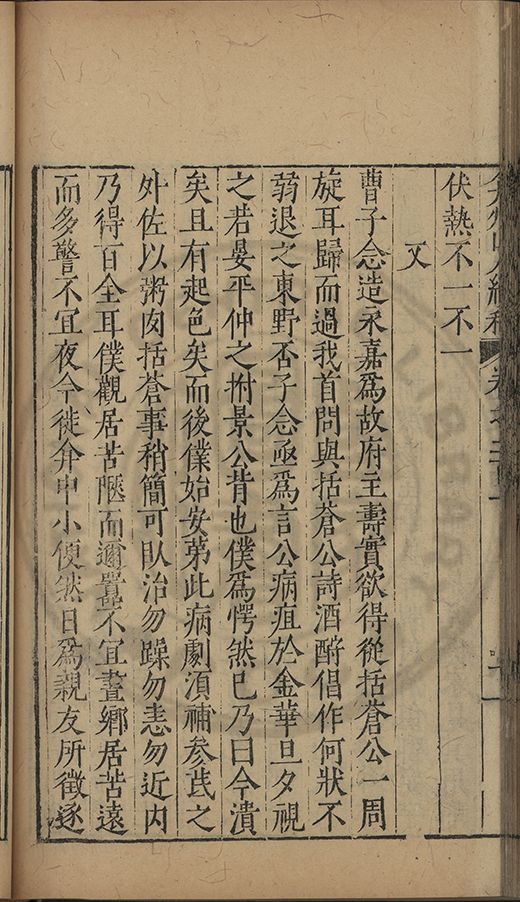 弇州山人續稿
伏熱不一不一
又
曹子念造永嘉為故府主壽實欲得從括蒼公一周
旋耳歸而過我首問與括蒼公詩酒酧倡作何狀不
弱退之東野否子念亟為言公病疽於金華旦夕視
之若晏平仲之拊景公背也僕為愕然已乃曰今潰
矣且有起色矣而後僕始安苐此病劇湏補參芪之
外佐以粥肉括蒼事稍簡可臥治勿躁勿恚勿近内
乃得百全耳僕觀居苦陿而邇囂不宜晝鄉居苦遠
而多警不宜夜今徙弇中小便然日為親友所徵逐